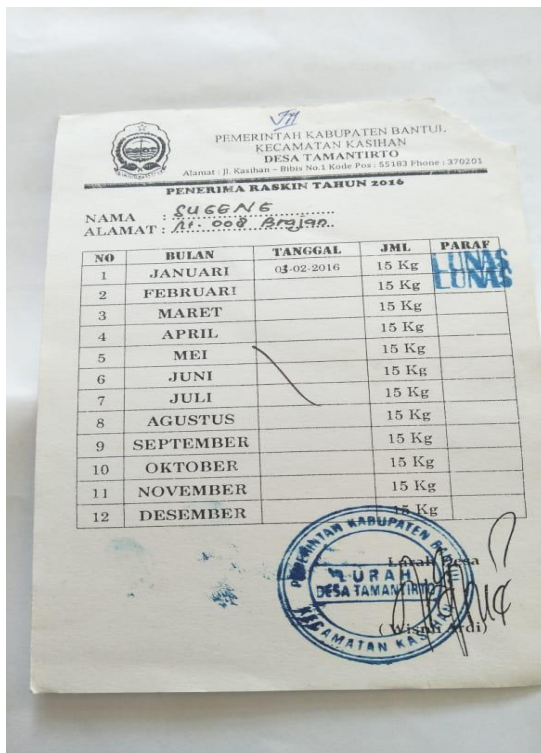 PEMERINTAH KABUPATEN BANTUL
KECAMATAN KASIHAN
DESA TAMANTIRTO
Alamat : Jl. Kasihan – Bibis No.1 Kode Pos : 55183 Phone : 370201
PENERIMA RASKIN TAHUN 2016
NAMA : SUGENG
ALAMAT : Rt. 008 Brajan
NO BULAN TANGGAL JML PARAF
1 JANUARI 03-02-2016 15 Kg LUNAS
2 FEBRUARI 15 Kg LUNAS
3 MARET 15 Kg
4 APRIL 15 Kg
5 MEI 15 Kg
6 JUNI 15 Kg
7 JULI 15 Kg
8 AGUSTUS 15 Kg
9 SEPTEMBER 15 Kg
10 OKTOBER 15 Kg
11 NOVEMBER 15 Kg
12 DESEMBER 15 Kg
Lurah Desa
PEMERINTAH KABUPATEN
LURAH
DESA TAMANTIRTO
KECAMATAN KASIHAN
( Wisnu Ardi)